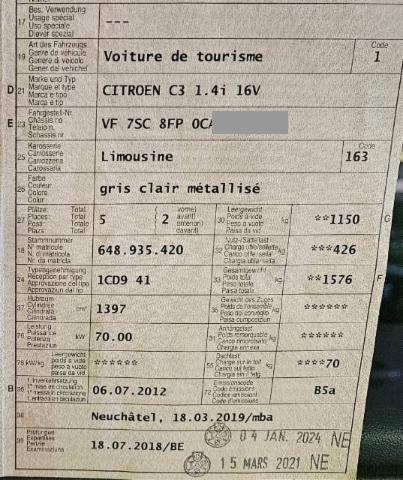 17 Bes. Verwendung
Usage spécial
Uso speciale
Diever spezial
---
19 Art des Fahrzeugs
Genre de véhicule
Genere di veicolo
Gener dal vehichel
Voiture de tourisme
Code
1
D 21 Marke und Typ
Marque et type
Marca e tipo
Marca e tip
CITROEN C3 1.4i 16V
E 23 Fahrgestell-Nr.
Châssis no
Telaio n.
Schassis nr.
VF 7SC 8FP 0CA
25 Karosserie
Carrosserie
Carrozzeria
Carossaria
Limousine
Code
163
26 Farbe
Couleur
Colore
Colur
gris clair métallisé
27 Plätze: Total
Places: Total
Posti: Totale
Plazs: Total
5
2
vorne)
avant)
anteriori)
davant)
30 Leergewicht
Poids à vide
Peso a vuoto
Paisa da vid
kg
**1150
G
18 Stammnummer
N° matricule
N. di matricola
Nr. da matricla
648.935.420
32 Nutz-/Sattellast
Charge utile/sellette
Carico utile/sella
Chargia utila/sella
kg
***426
24 Typengenehmigung
Réception par type
Approvazione del tipo
Approvaziun dal tip
1CD9 41
33 Gesamtgewicht
Poids total
Peso totale
Paisa totala
kg
**1576
F
37 Hubraum
Cylindrée
Cilindrata
Cilindrada
cm³
1397
Gewicht des Zuges
Poids de l'ensemble
Peso del convoglio
Paisa cumposiziun
kg
******
76 Leistung
Puissance
Potenza
Prestaziun
kW
70.00
31 Anhängelast
Poids remorquable
Carico rimorchiato
Chargia annexa
kg
******
78 kW/kg
Leergewicht
poids à vide
peso a vuoto
paisa da vid
******
55 Dachlast
Charge sur le toit
Carico sul tetto
Chargia sin il tetg
kg
****70
B 36 1. Inverkehrsetzung
1re mise en circulation
1a messa in circolazione
1. entrada en circulaziun
06.07.2012
72 Emissionscode
Code émissions
Codice emissioni
Code d'emissiuns
B5a
38
Neuchâtel, 18.03.2019/mba
39 Prüfungen
Expertises
Perizie
Examinaziuns
18.07.2018/BE
04 JAN. 2024 NE
15 MARS 2021 NE